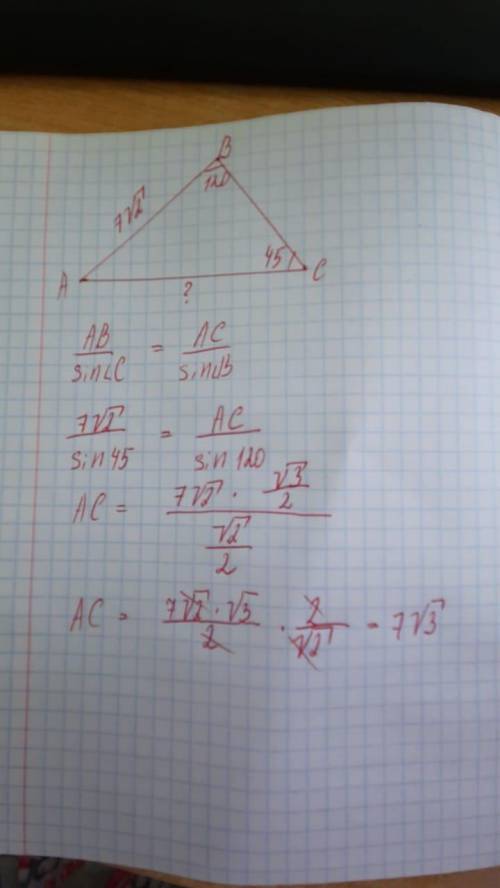 B
120
7√2
45
A
C
?
AB/sin∠C = AC/sin∠B
7√2/sin 45 = AC/sin 120
AC = (7√2 · √3/2)/(√2/2)
AC = (7√2 · √3)/2 · 2/√2 = 7√3